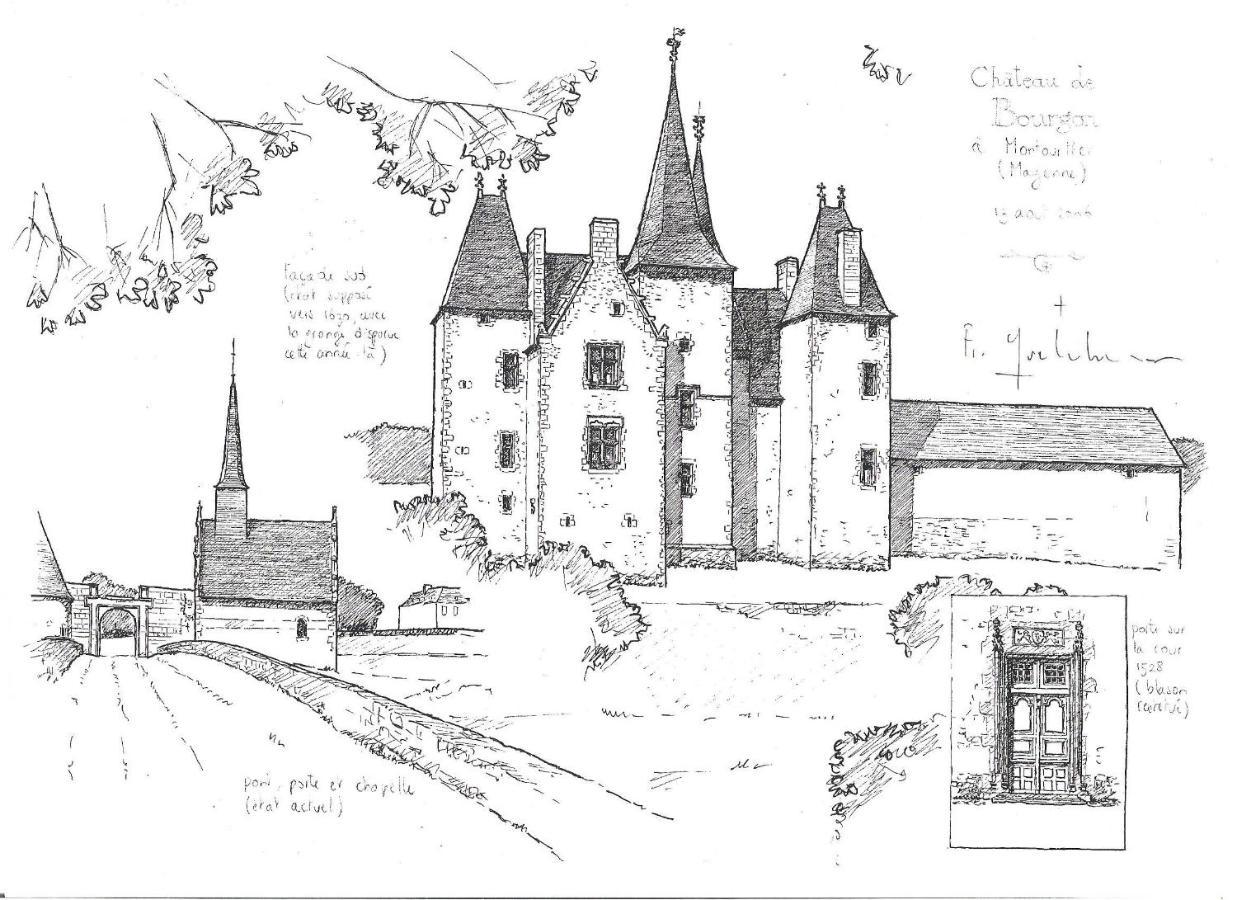 Château de
Bourgon
à Montourtier
(Mayenne)
13 août 2006
G
Fr.
façade sud
(état supposé
vers 1630, avec
la grange d'époque
cette année-là)
pont, porte et chapelle
(état actuel)
porte sur
la cour
1528
(blason